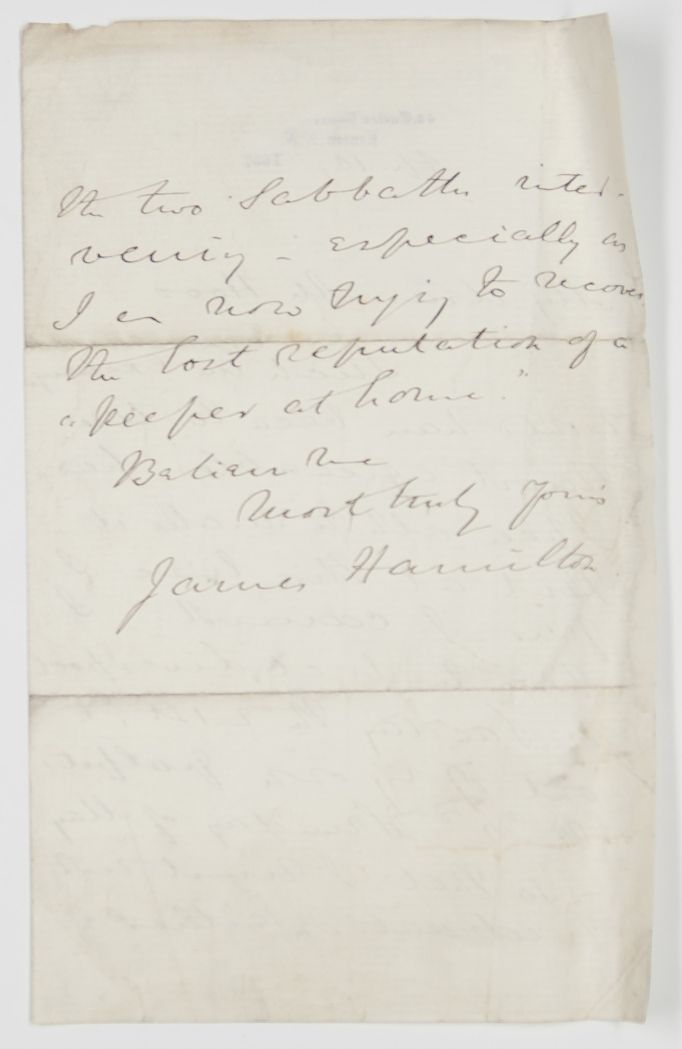 the two Sabbaths inter-
vening - especially as
I am now trying to recover
the lost reputation of a
"keeper at home."
Believe me
Most truly yours
James Hamilton